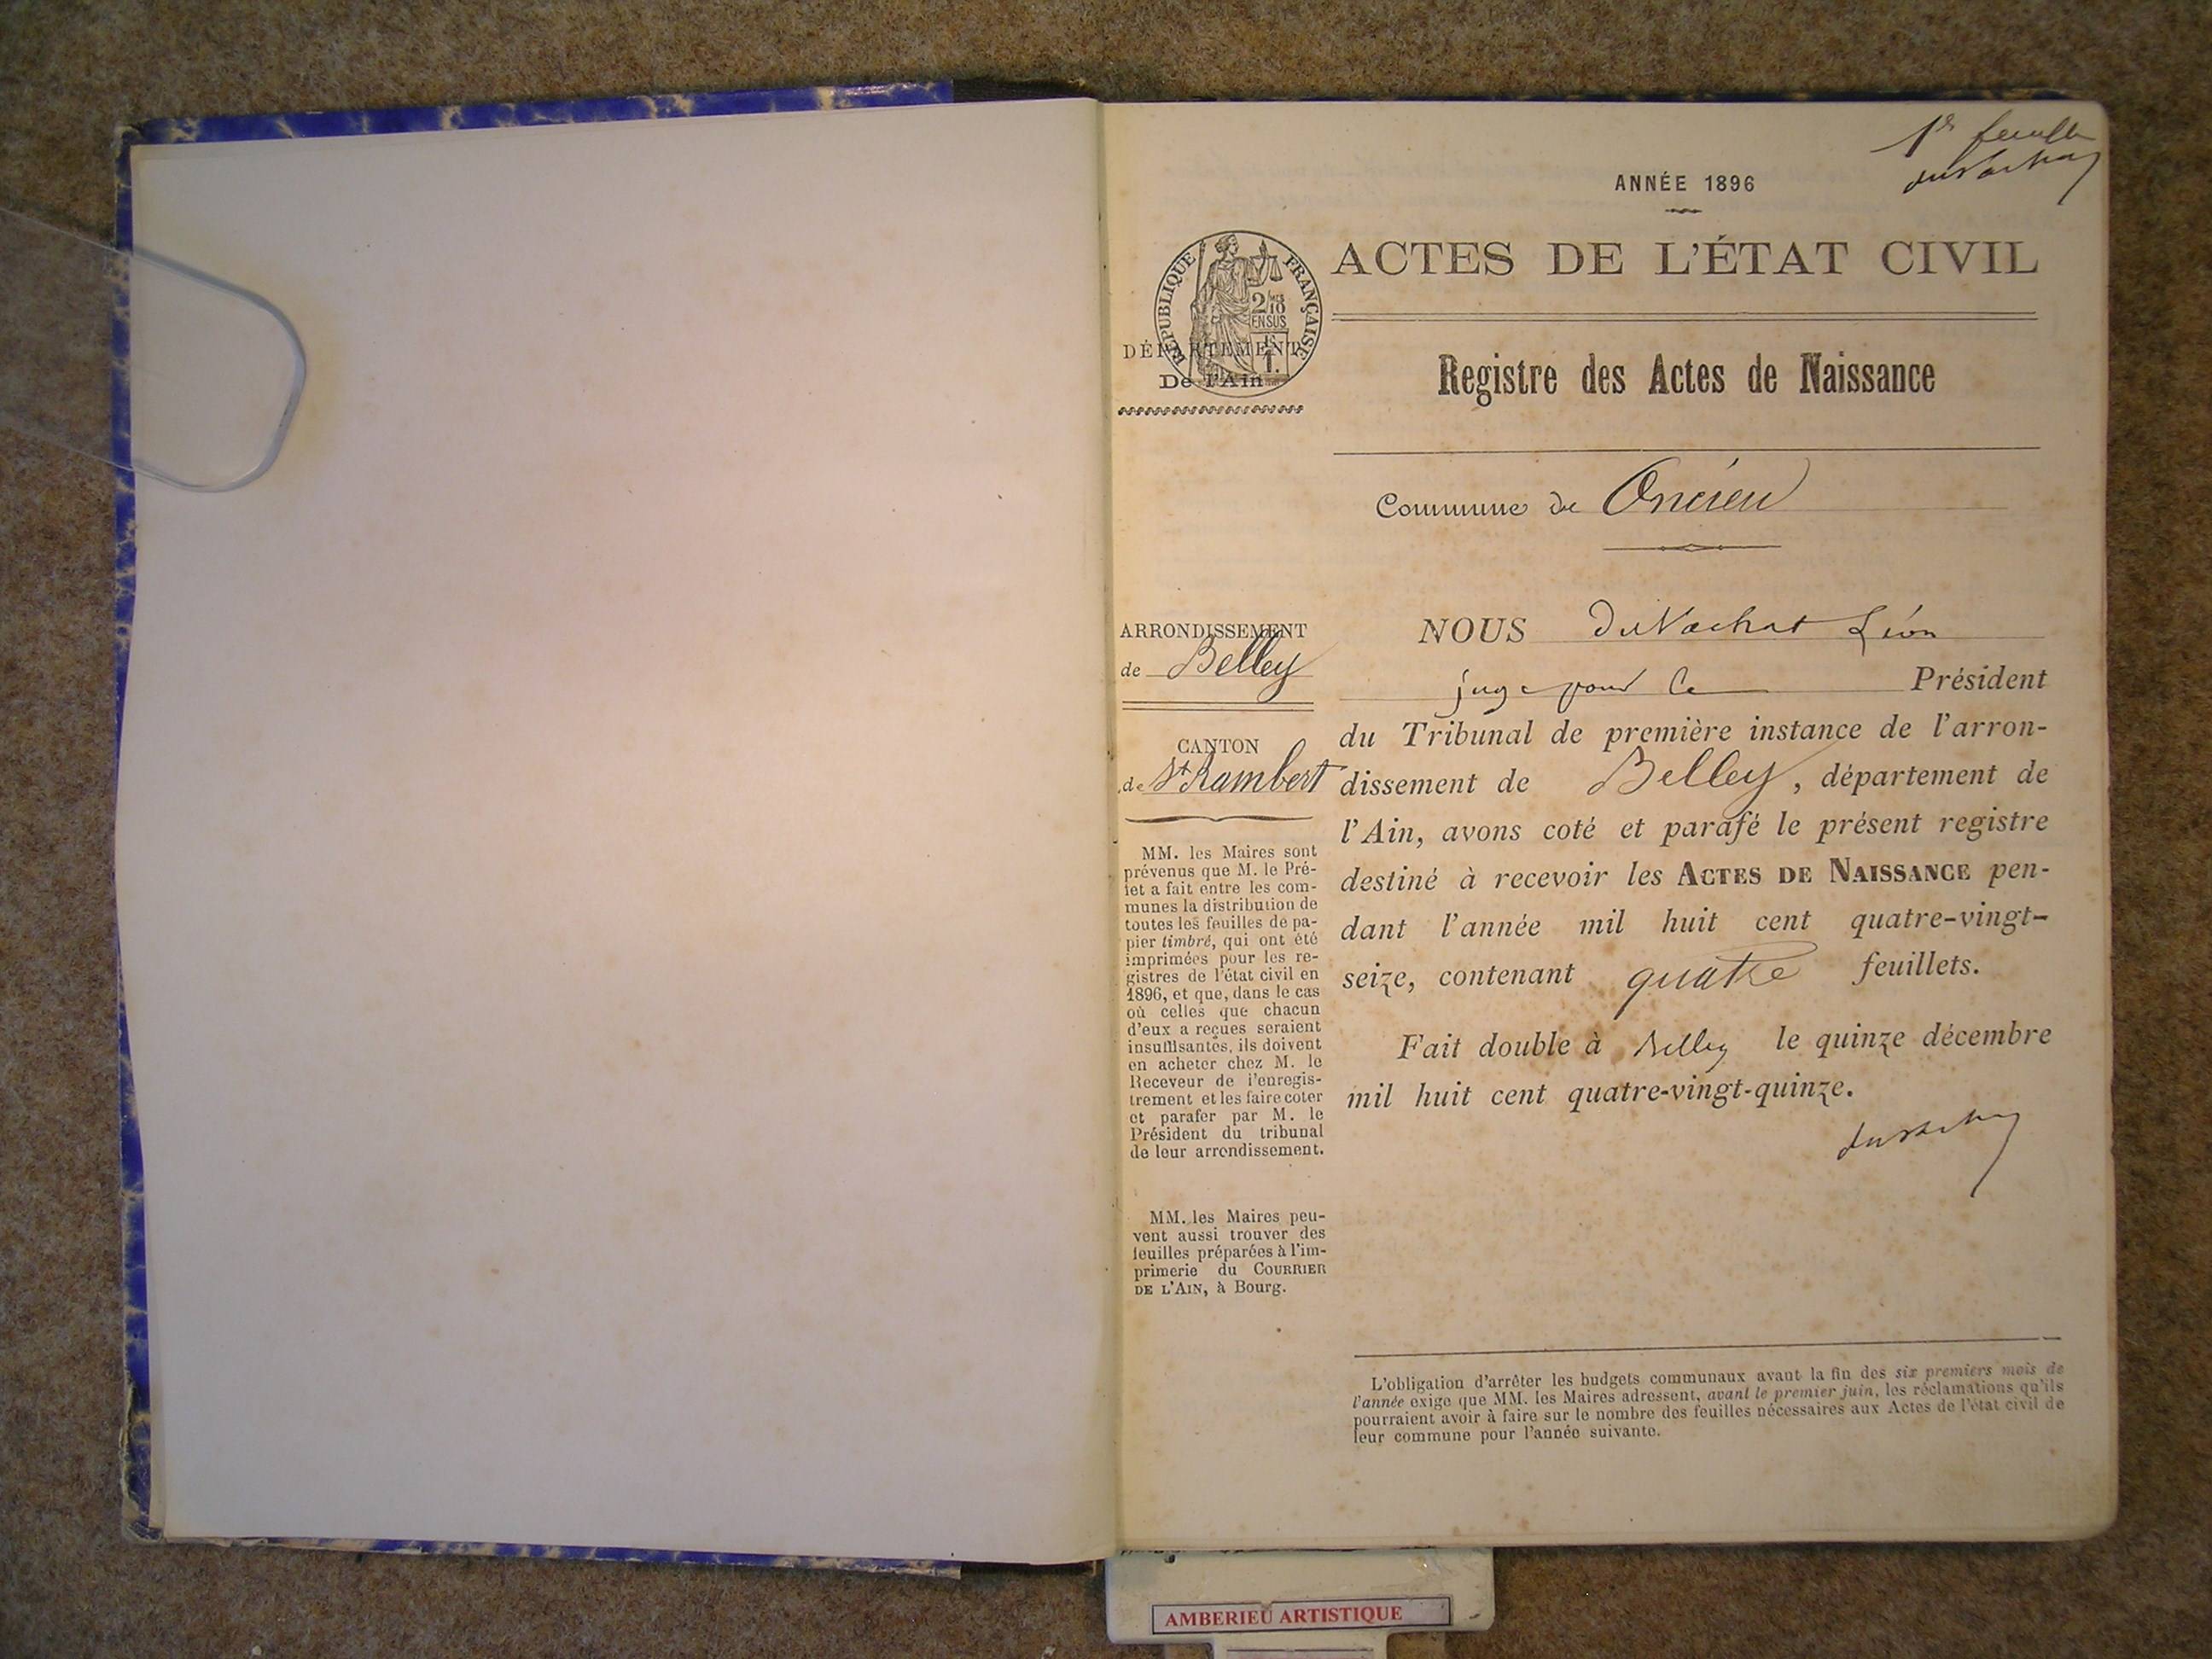 1er feuillet
duVachat
ANNÉE 1896
ACTES DE L'ÉTAT CIVIL
RÉPUBLIQUE FRANÇAISE
2/10
EN SUS
DÉPARTEMENT
De l'Ain
Registre des Actes de Naissance
Commune de Oncieu
ARRONDISSEMENT
de Belley
CANTON
de St Rambert
MM. les Maires sont
prévenus que M. le Pré-
fet a fait entre les com-
munes la distribution de
toutes les feuilles de pa-
pier timbré, qui ont été
imprimées pour les re-
gistres de l'état civil en
1896, et que, dans le cas
où celles que chacun
d'eux a reçues seraient
insuffisantes, ils doivent
en acheter chez M. le
Receveur de l'enregis-
trement et les faire coter
et parafer par M. le
Président du tribunal
de leur arrondissement.
MM. les Maires peu-
vent aussi trouver des
feuilles préparées à l'im-
primerie du COURRIER
DE L'AIN, à Bourg.
NOUS duVachat Léon
juge pour le Président
du Tribunal de première instance de l'arron-
dissement de Belley, département de
l'Ain, avons coté et parafé le présent registre
destiné à recevoir les ACTES DE NAISSANCE pen-
dant l'année mil huit cent quatre-vingt-
seize, contenant quatre feuillets.
Fait double à Belley le quinze décembre
mil huit cent quatre-vingt-quinze.
duVachat
L'obligation d'arrêter les budgets communaux avant la fin des six premiers mois de
l'année exige que MM. les Maires adressent, avant le premier juin, les réclamations qu'ils
pourraient avoir à faire sur le nombre des feuilles nécessaires aux Actes de l'état civil de
leur commune pour l'année suivante.
AMBERIEU ARTISTIQUE